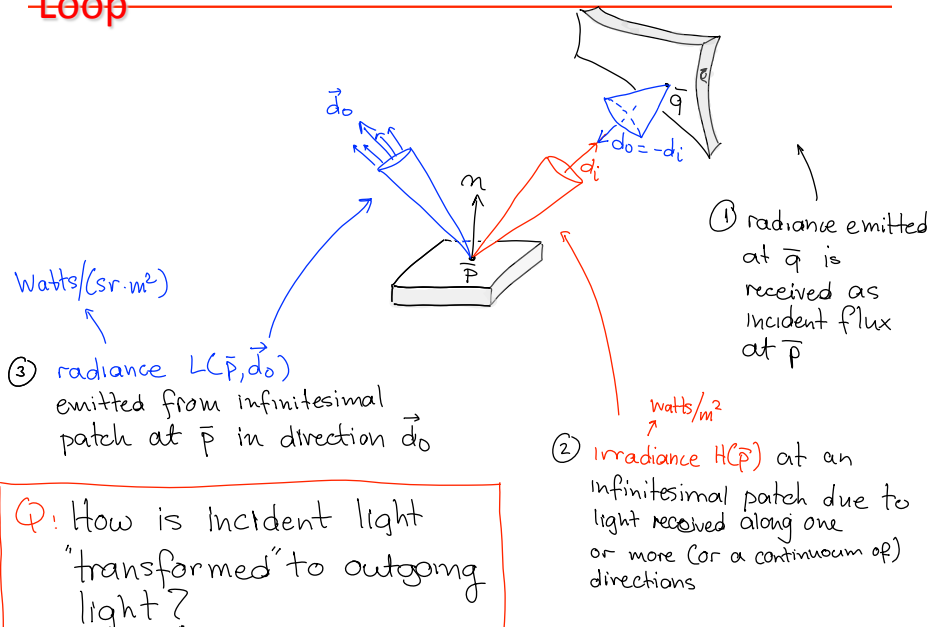 Loop
d⃗o
n
p̄
di
q̄
do = -di
① radiance emitted
at q̄ is
received as
incident flux
at p̄
Watts/(sr·m²)
③ radiance L(p̄, d⃗o)
emitted from infinitesimal
patch at p̄ in direction d⃗o
watts/m²
② irradiance H(p̄) at an
infinitesimal patch due to
light received along one
or more (or a continuoum of)
directions
Q: How is incident light
"transformed" to outgoing
light?